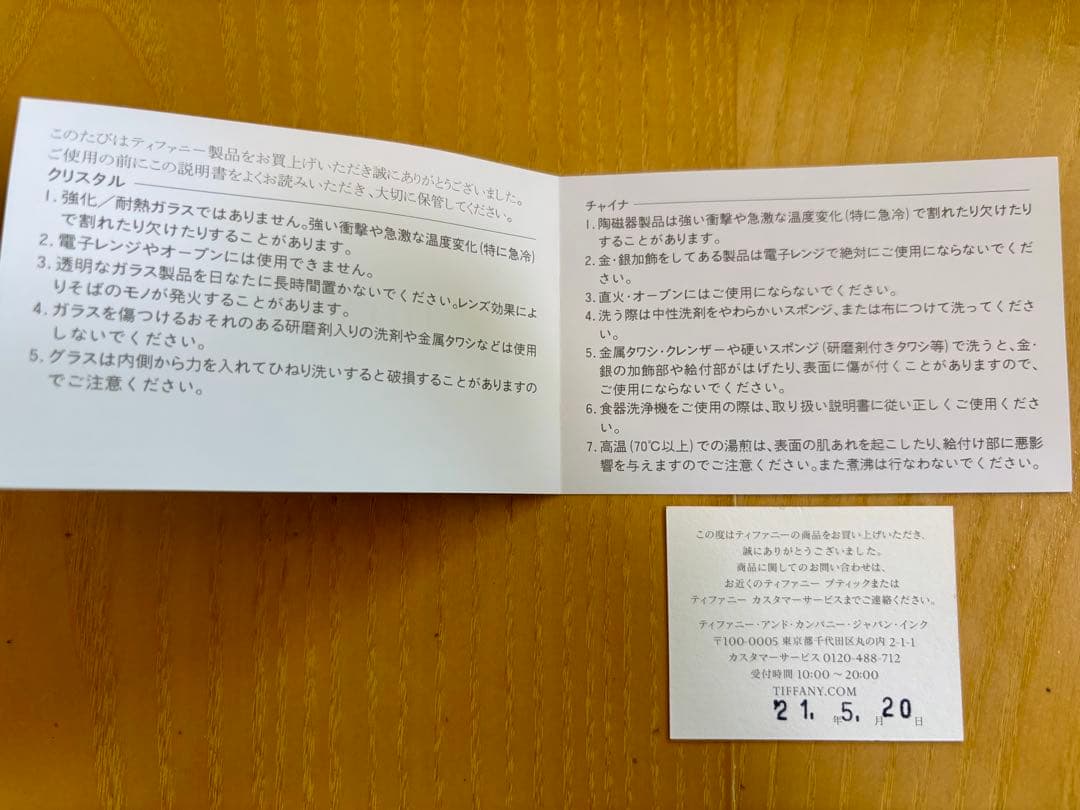 このたびはティファニー製品をお買上げいただき誠にありがとうございました。
ご使用の前にこの説明書をよくお読みいただき、大切に保管してください。
クリスタル
1. 強化／耐熱ガラスではありません。強い衝撃や急激な温度変化(特に急冷)
で割れたり欠けたりすることがあります。
2. 電子レンジやオーブンには使用できません。
3. 透明なガラス製品を日なたに長時間置かないでください。レンズ効果によ
りそばのモノが発火することがあります。
4. ガラスを傷つけるおそれのある研磨剤入りの洗剤や金属タワシなどは使用
しないでください。
5. グラスは内側から力を入れてひねり洗いすると破損することがありますの
でご注意ください。
チャイナ
1. 陶磁器製品は強い衝撃や急激な温度変化(特に急冷)で割れたり欠けたり
することがあります。
2. 金・銀加飾をしてある製品は電子レンジで絶対にご使用にならないでくだ
さい。
3. 直火・オーブンにはご使用にならないでください。
4. 洗う際は中性洗剤をやわらかいスポンジ、または布につけて洗ってくださ
い。
5. 金属タワシ・クレンザーや硬いスポンジ(研磨剤付きタワシ等)で洗うと、金・
銀の加飾部や絵付部がはげたり、表面に傷が付くことがありますので、
ご使用にならないでください。
6. 食器洗浄機をご使用の際は、取り扱い説明書に従い正しくご使用くださ
い。
7. 高温(70℃以上)での湯煎は、表面の肌あれを起こしたり、絵付け部に悪影
響を与えますのでご注意ください。また煮沸は行なわないでください。
この度はティファニーの商品をお買い上げいただき、
誠にありがとうございました。
商品に関してのお問い合わせは、
お近くのティファニー ブティックまたは
ティファニー カスタマーサービスまでご連絡ください。
ティファニー・アンド・カンパニー・ジャパン・インク
〒100-0005 東京都千代田区丸の内 2-1-1
カスタマーサービス 0120-488-712
受付時間 10:00 〜 20:00
TIFFANY.COM
'21. 年 5. 月 20 日